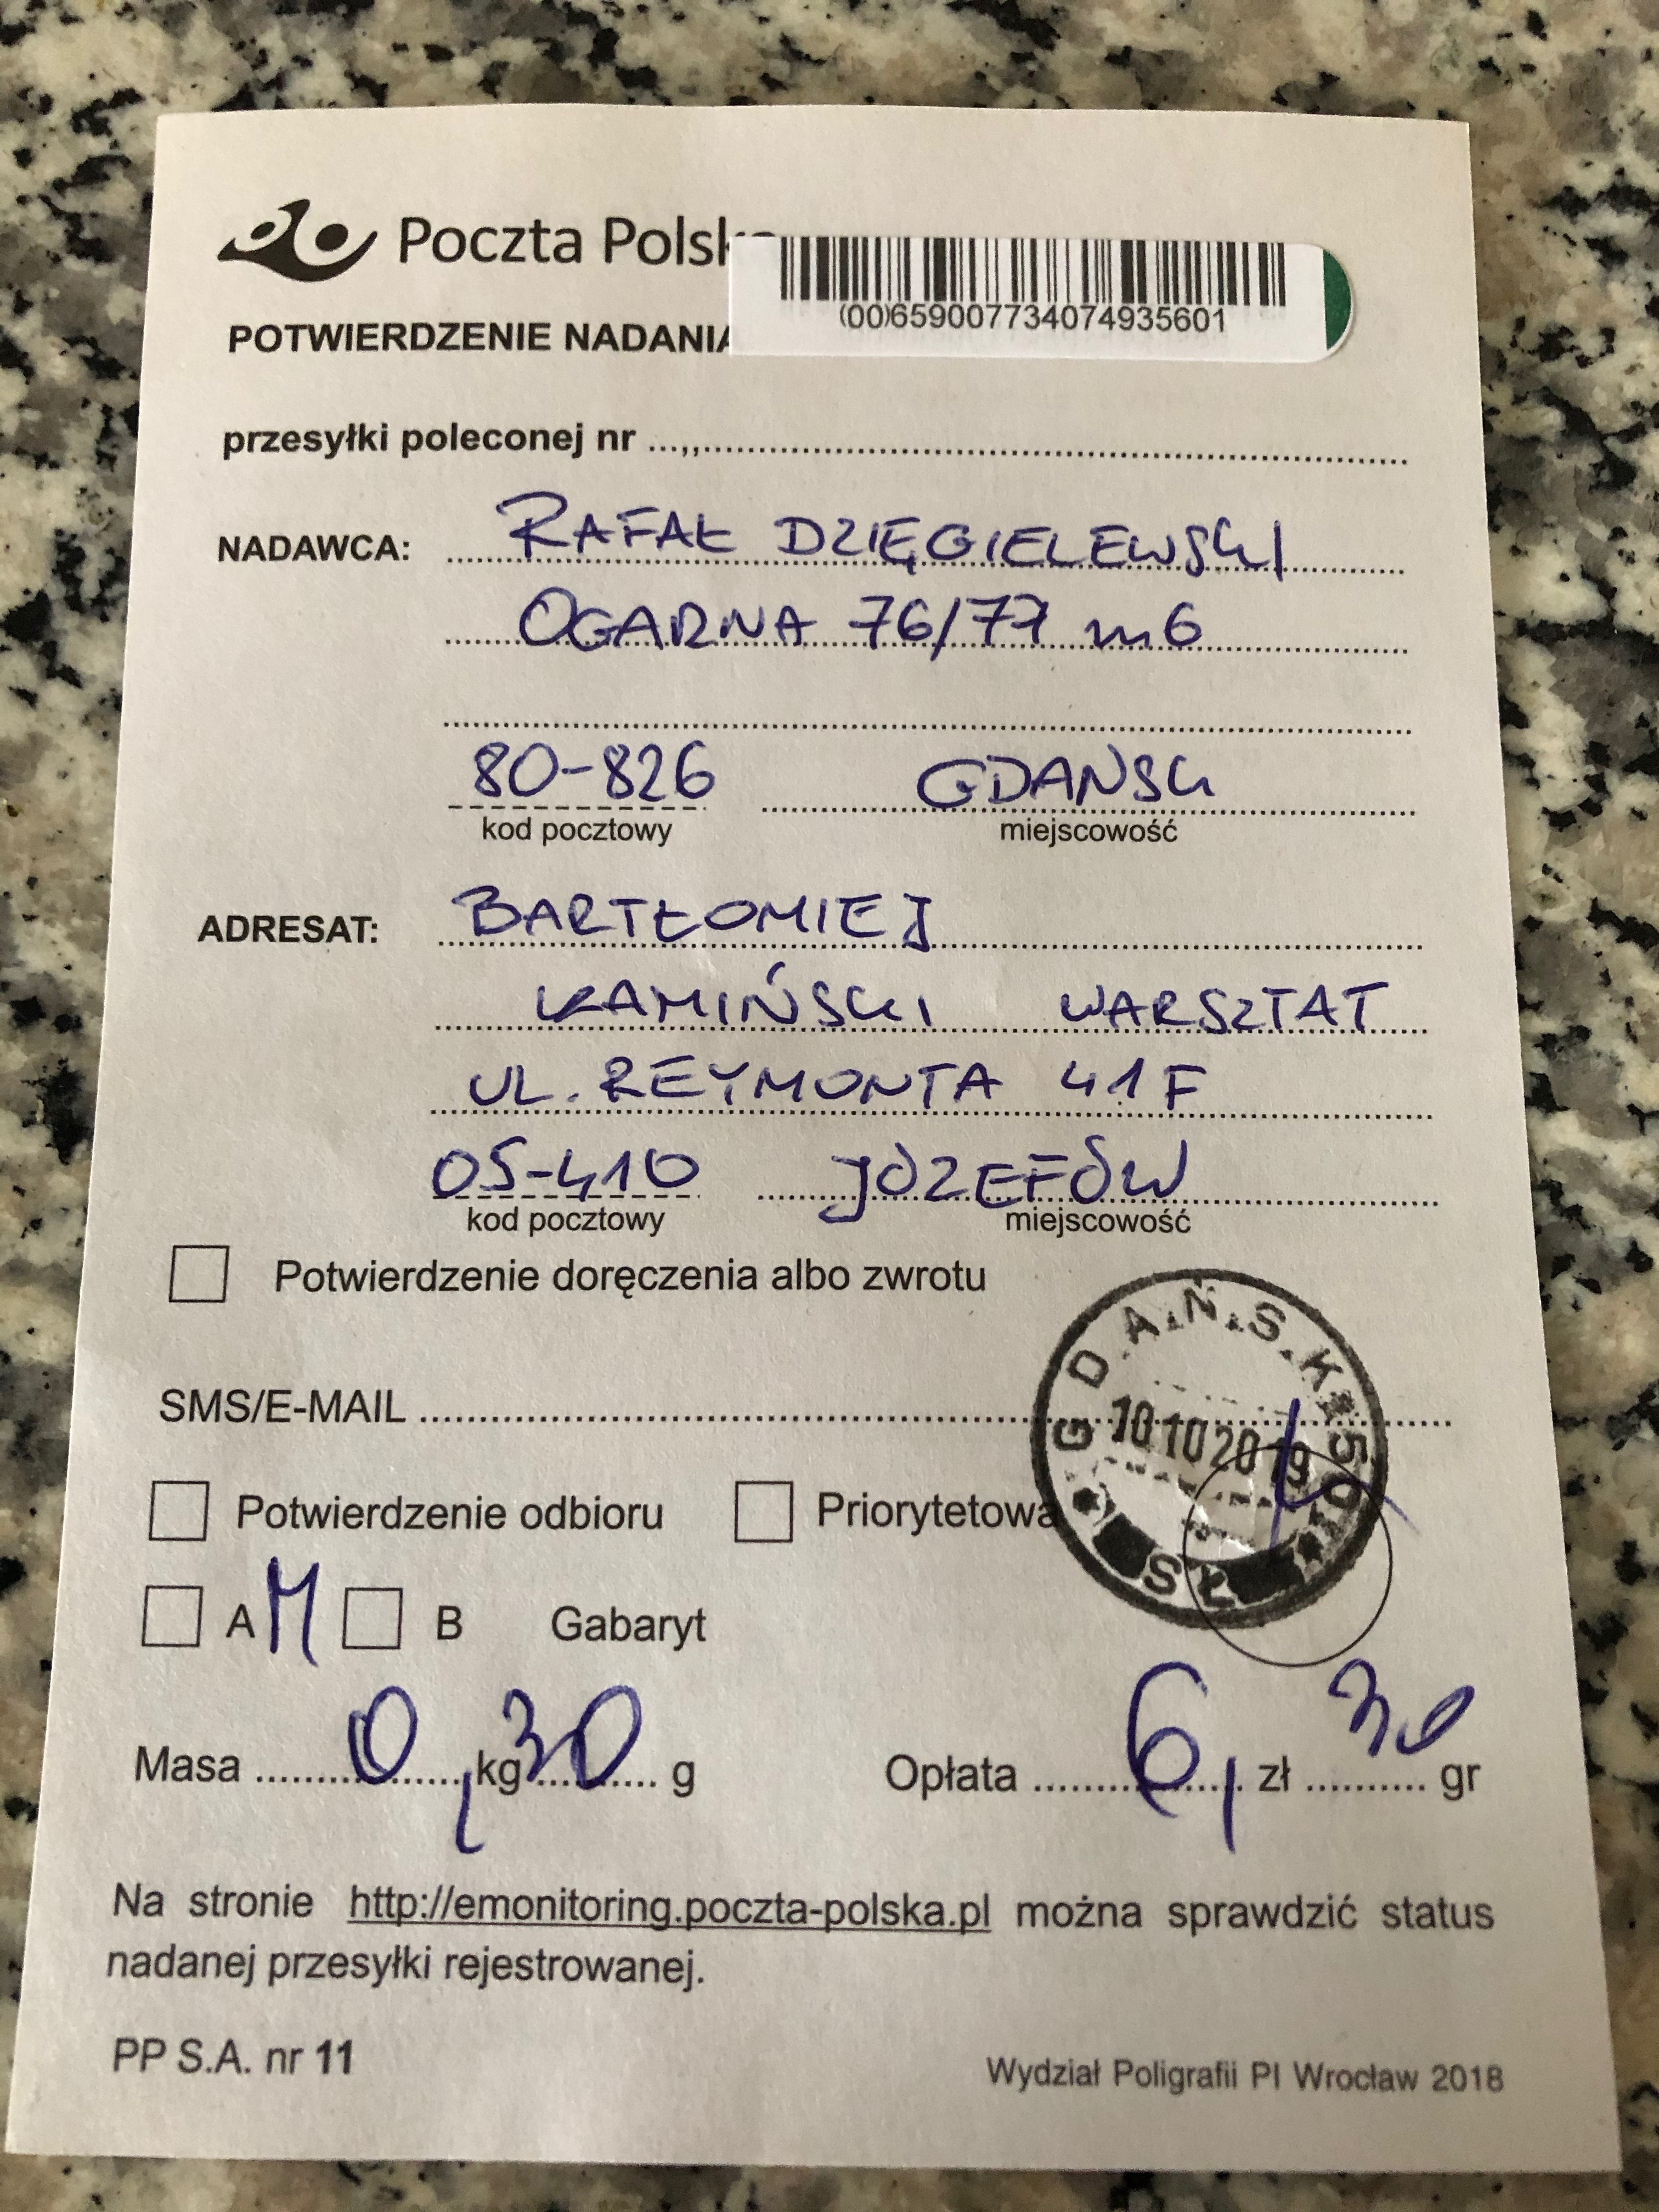 Poczta Polska
(00)659007734074935601
POTWIERDZENIE NADANIA
przesyłki poleconej nr
NADAWCA: RAFAŁ DZIĘGIELEWSKI
OGARNA 76/77 m 6
80-826 GDAŃSK
kod pocztowy miejscowość
ADRESAT: BARTŁOMIEJ
KAMIŃSKI WARSZTAT
UL. REYMONTA 41F
05-410 JÓZEFÓW
kod pocztowy miejscowość
Potwierdzenie doręczenia albo zwrotu
SMS/E-MAIL
GDAŃSK 50
10 10 2019
Potwierdzenie odbioru Priorytetowa
A M B Gabaryt
Masa 0, kg 30 g Opłata 6, zł 30 gr
Na stronie http://emonitoring.poczta-polska.pl można sprawdzić status
nadanej przesyłki rejestrowanej.
PP S.A. nr 11 Wydział Poligrafii PI Wrocław 2018